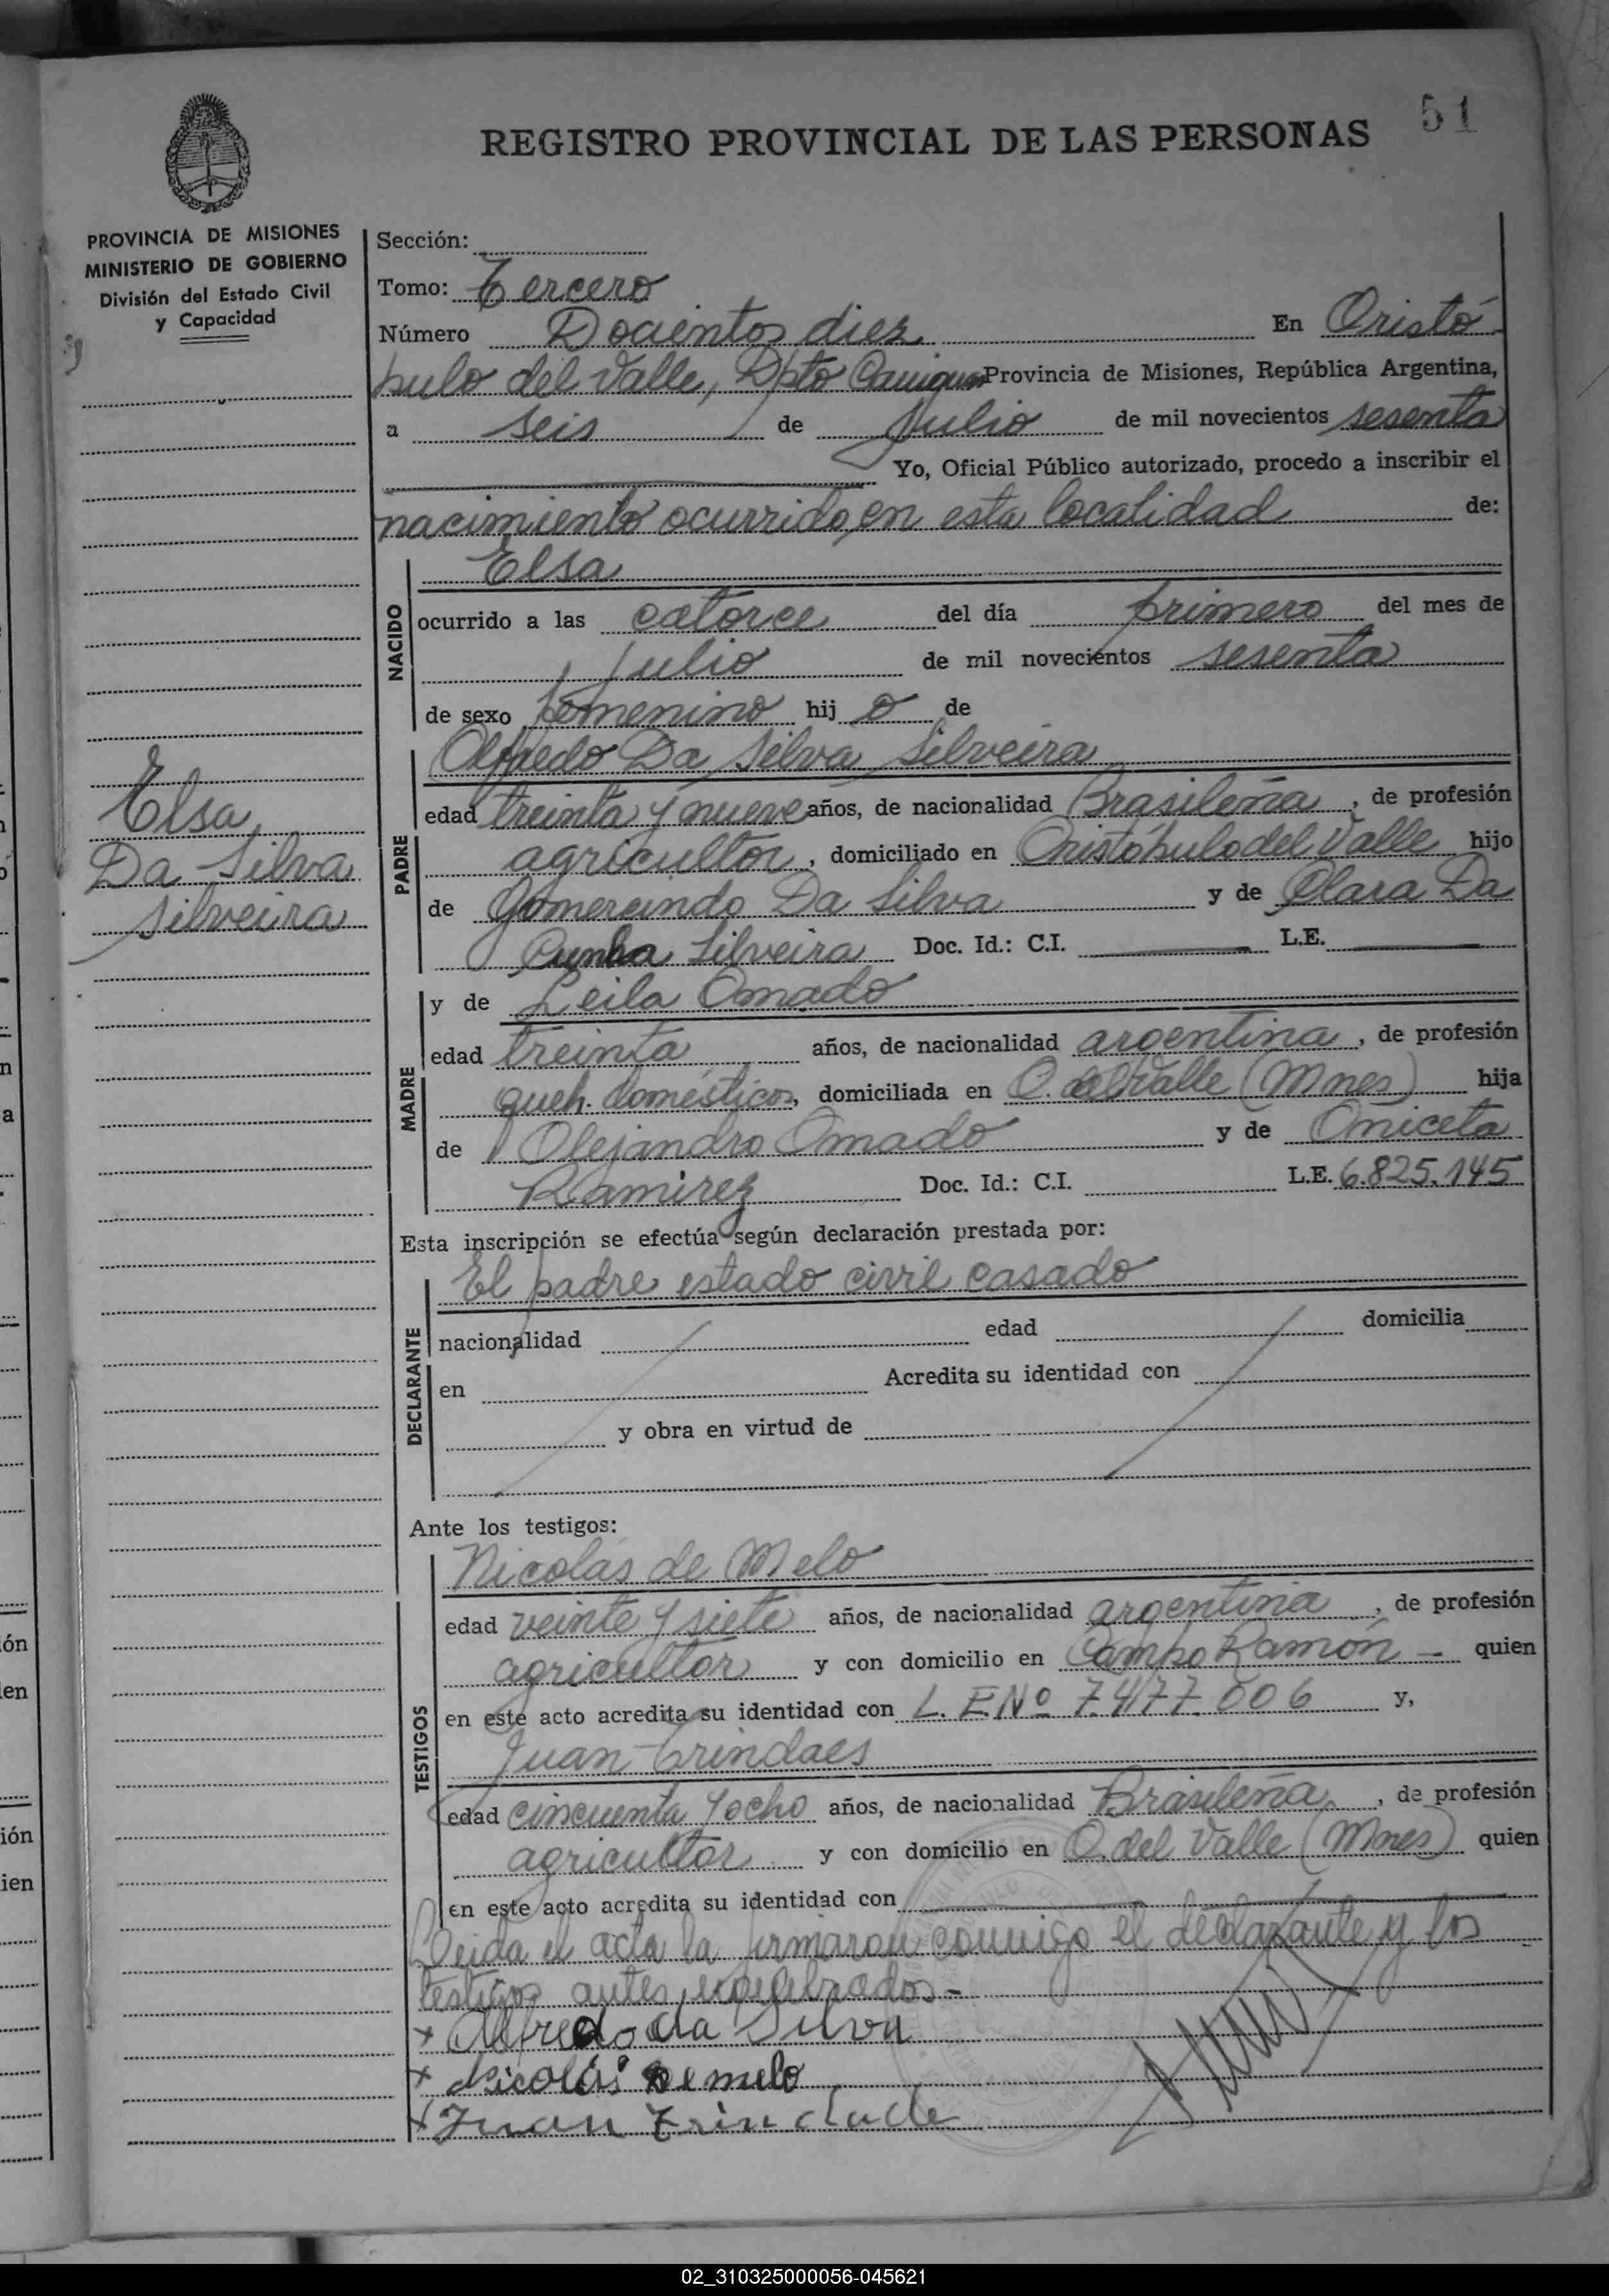 51
REGISTRO PROVINCIAL DE LAS PERSONAS
PROVINCIA DE MISIONES
MINISTERIO DE GOBIERNO
División del Estado Civil
y Capacidad
Elsa
Da Silva
Silveira
Sección:
Tomo: Tercero
Número Docientos diez En Aristó
bulo del Valle, Dpto Cainguas Provincia de Misiones, República Argentina,
a seis de Julio de mil novecientos sesenta
Yo, Oficial Público autorizado, procedo a inscribir el
nacimiento ocurrido en esta localidad de:
NACIDO
Elsa
ocurrido a las catorce del día primero del mes de
Julio de mil novecientos sesenta
de sexo femenino hij o de
PADRE
Alfredo Da Silva Silveira
edad treinta y nueve años, de nacionalidad Brasileña, de profesión
agricultor, domiciliado en Aristóbulo del Valle hijo
de Gomercindo Da Silva y de Clara Da
Cunha Silveira Doc. Id.: C.I. L.E.
MADRE
y de Leila Amado
edad treinta años, de nacionalidad argentina, de profesión
queh. domésticos, domiciliada en A. del Valle (Mnes) hija
de Alejandro Amado y de Aniceta
Ramirez Doc. Id.: C.I. L.E. 6.825.145
Esta inscripción se efectúa según declaración prestada por:
DECLARANTE
El padre estado civil casado
nacionalidad edad domicilia
en Acredita su identidad con
y obra en virtud de
Ante los testigos:
TESTIGOS
Nicolás de Melo
edad veinte y siete años, de nacionalidad argentina, de profesión
agricultor y con domicilio en Campo Ramón - quien
en este acto acredita su identidad con L. E. Nº 7.477.006 y,
Juan Trindaes
edad cincuenta y ocho años, de nacionalidad Brasileña, de profesión
agricultor y con domicilio en A. del Valle (Mnes) quien
en este acto acredita su identidad con
Leida el acta la firmaron conmigo el declarante y los
testigos antes nombrados.-
x Alfredo da Silva
x Nicolás Demelo
x Juan Trindade
02_310325000056-045621